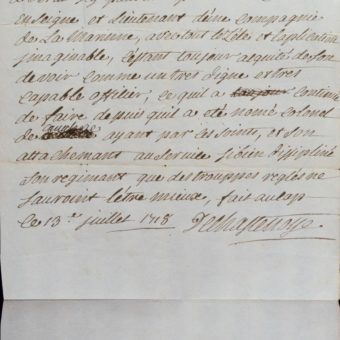 enseigne et Lieutenant d'une compagnie
de La Marinne, avec tout le zèle et l'aplication
imaginable, s'etant toujour aquité de son
devoir comme un tres digne et tres
capable officier, ce qu'il a continué
de faire depuis qu'il a eté nomé colonel
de ayant par ses soints, et son
attachemant au service si bien dissipliné
son regimant que des trouppes reglés ne
sauroint l'être mieux, fait au cap
ce 13.e juillet 1718 Dechastenoye